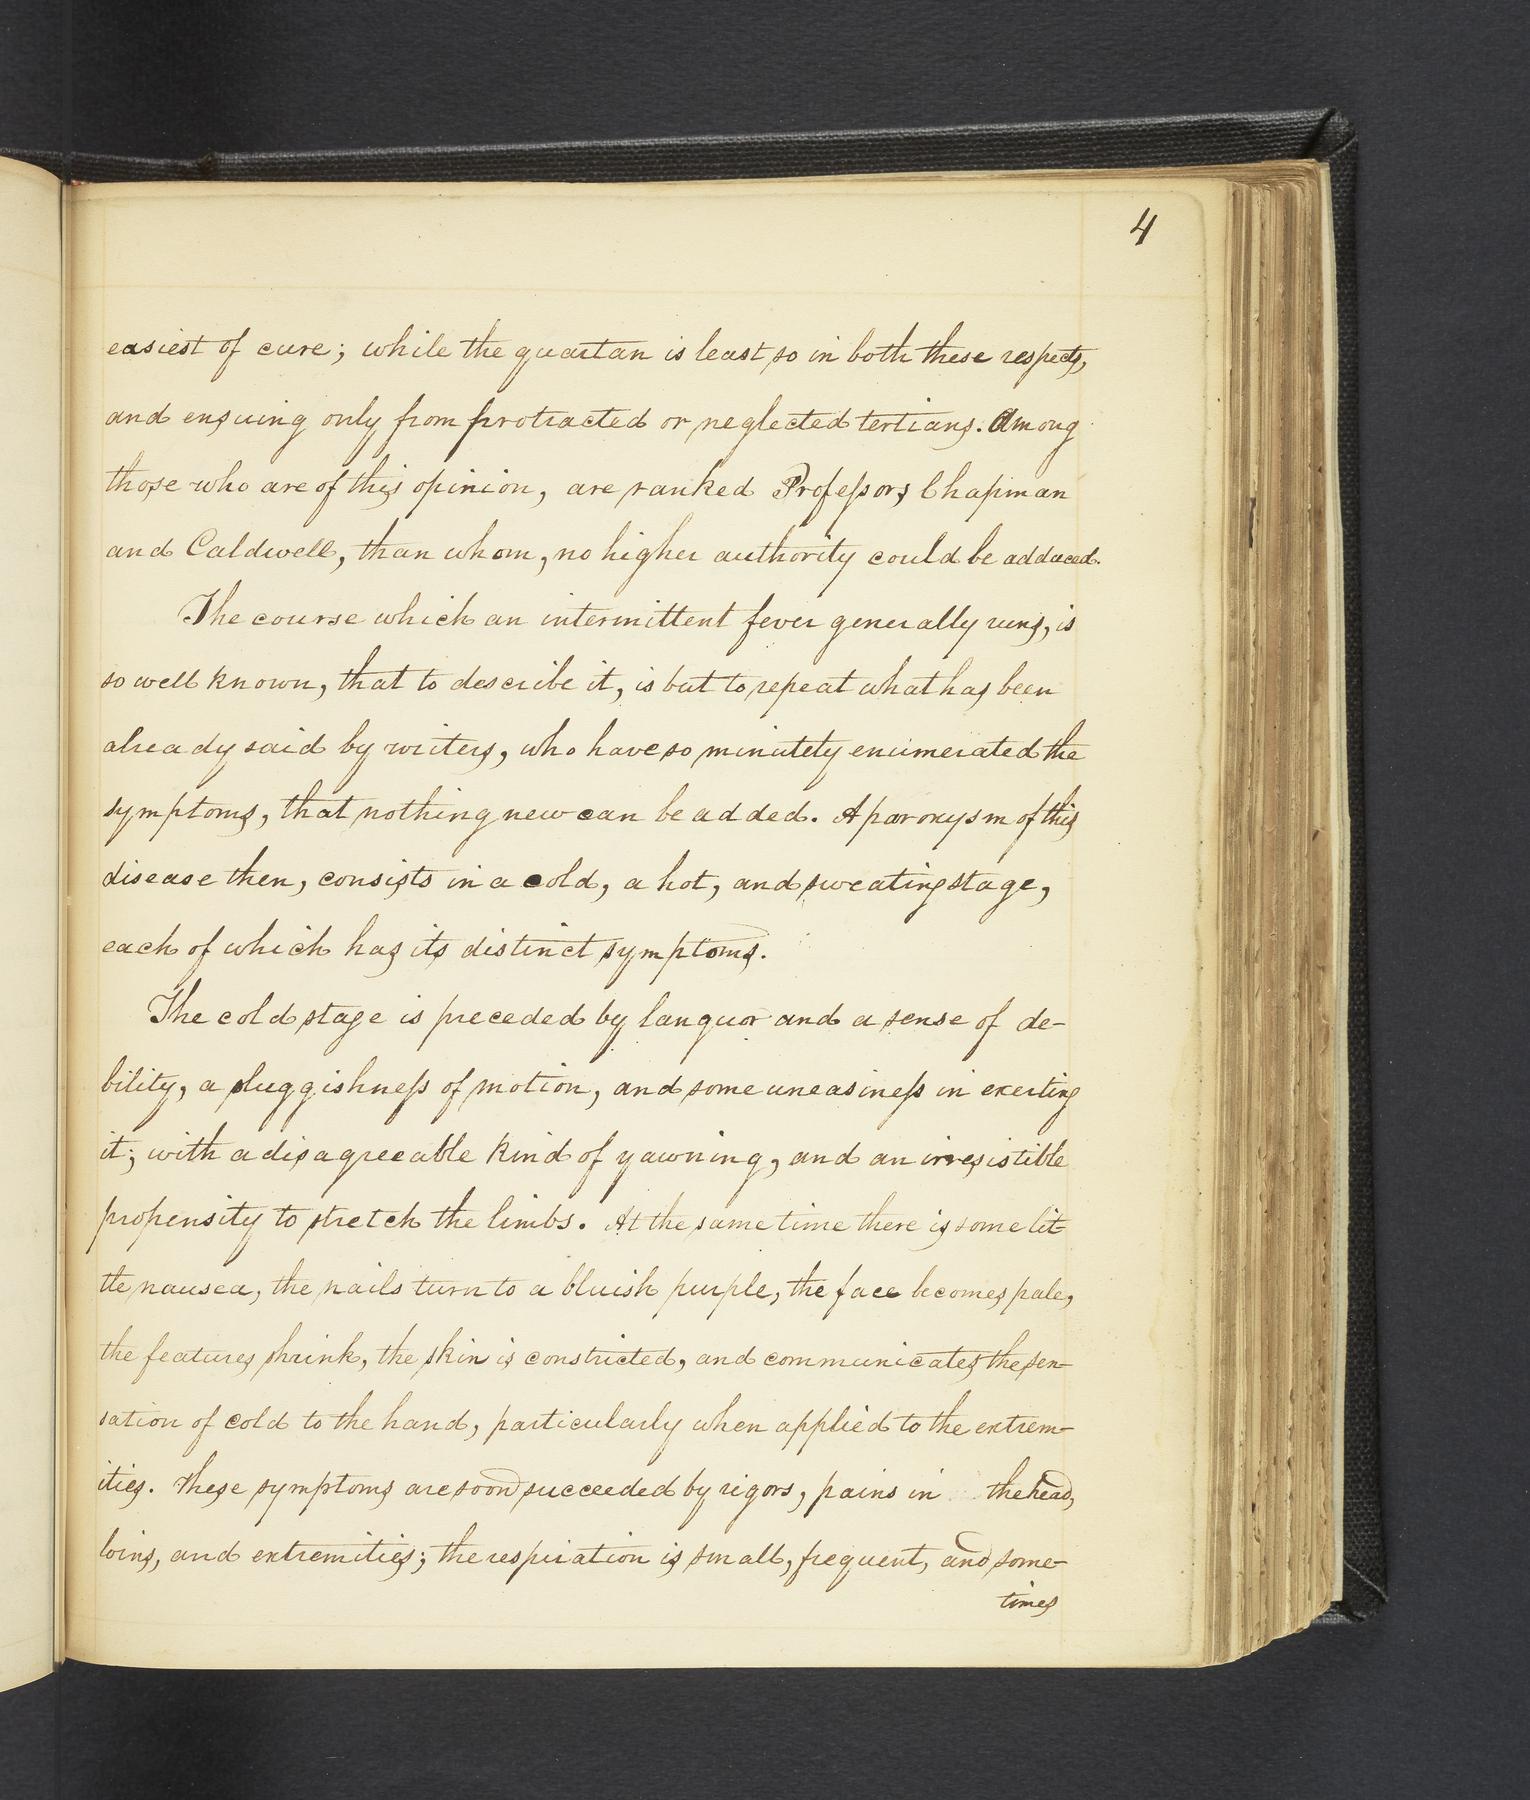 4
easiest of cure; while the quartan is least so in both these respects,
and ensuing only from protracted or neglected tertians. Among
those who are of this opinion, are ranked Professors Chapman
and Caldwell, than whom, no higher authority could be adduced.
The course which an intermittent fever generally runs, is
so well known, that to describe it, is but to repeat what has been
already said by writers, who have so minutely enumerated the
symptoms, that nothing new can be added. A paroxysm of this
disease then, consists in a cold, a hot, and sweating stage,
each of which has its distinct symptoms.
The cold stage is preceded by languor and a sense of de-
bility, a sluggishness of motion, and some uneasiness in exerting
it; with a disagreeable kind of yawning, and an irresistible
propensity to stretch the limbs. At the same time there is some lit-
tle nausea, the nails turn to a bluish purple, the face becomes pale,
the features shrink, the skin is constricted, and communicates the sen-
sation of cold to the hand, particularly when applied to the extrem-
ities. These symptoms are soon succeeded by rigors, pains in the head,
loins, and extremities; the respiration is small, frequent, and some-
times